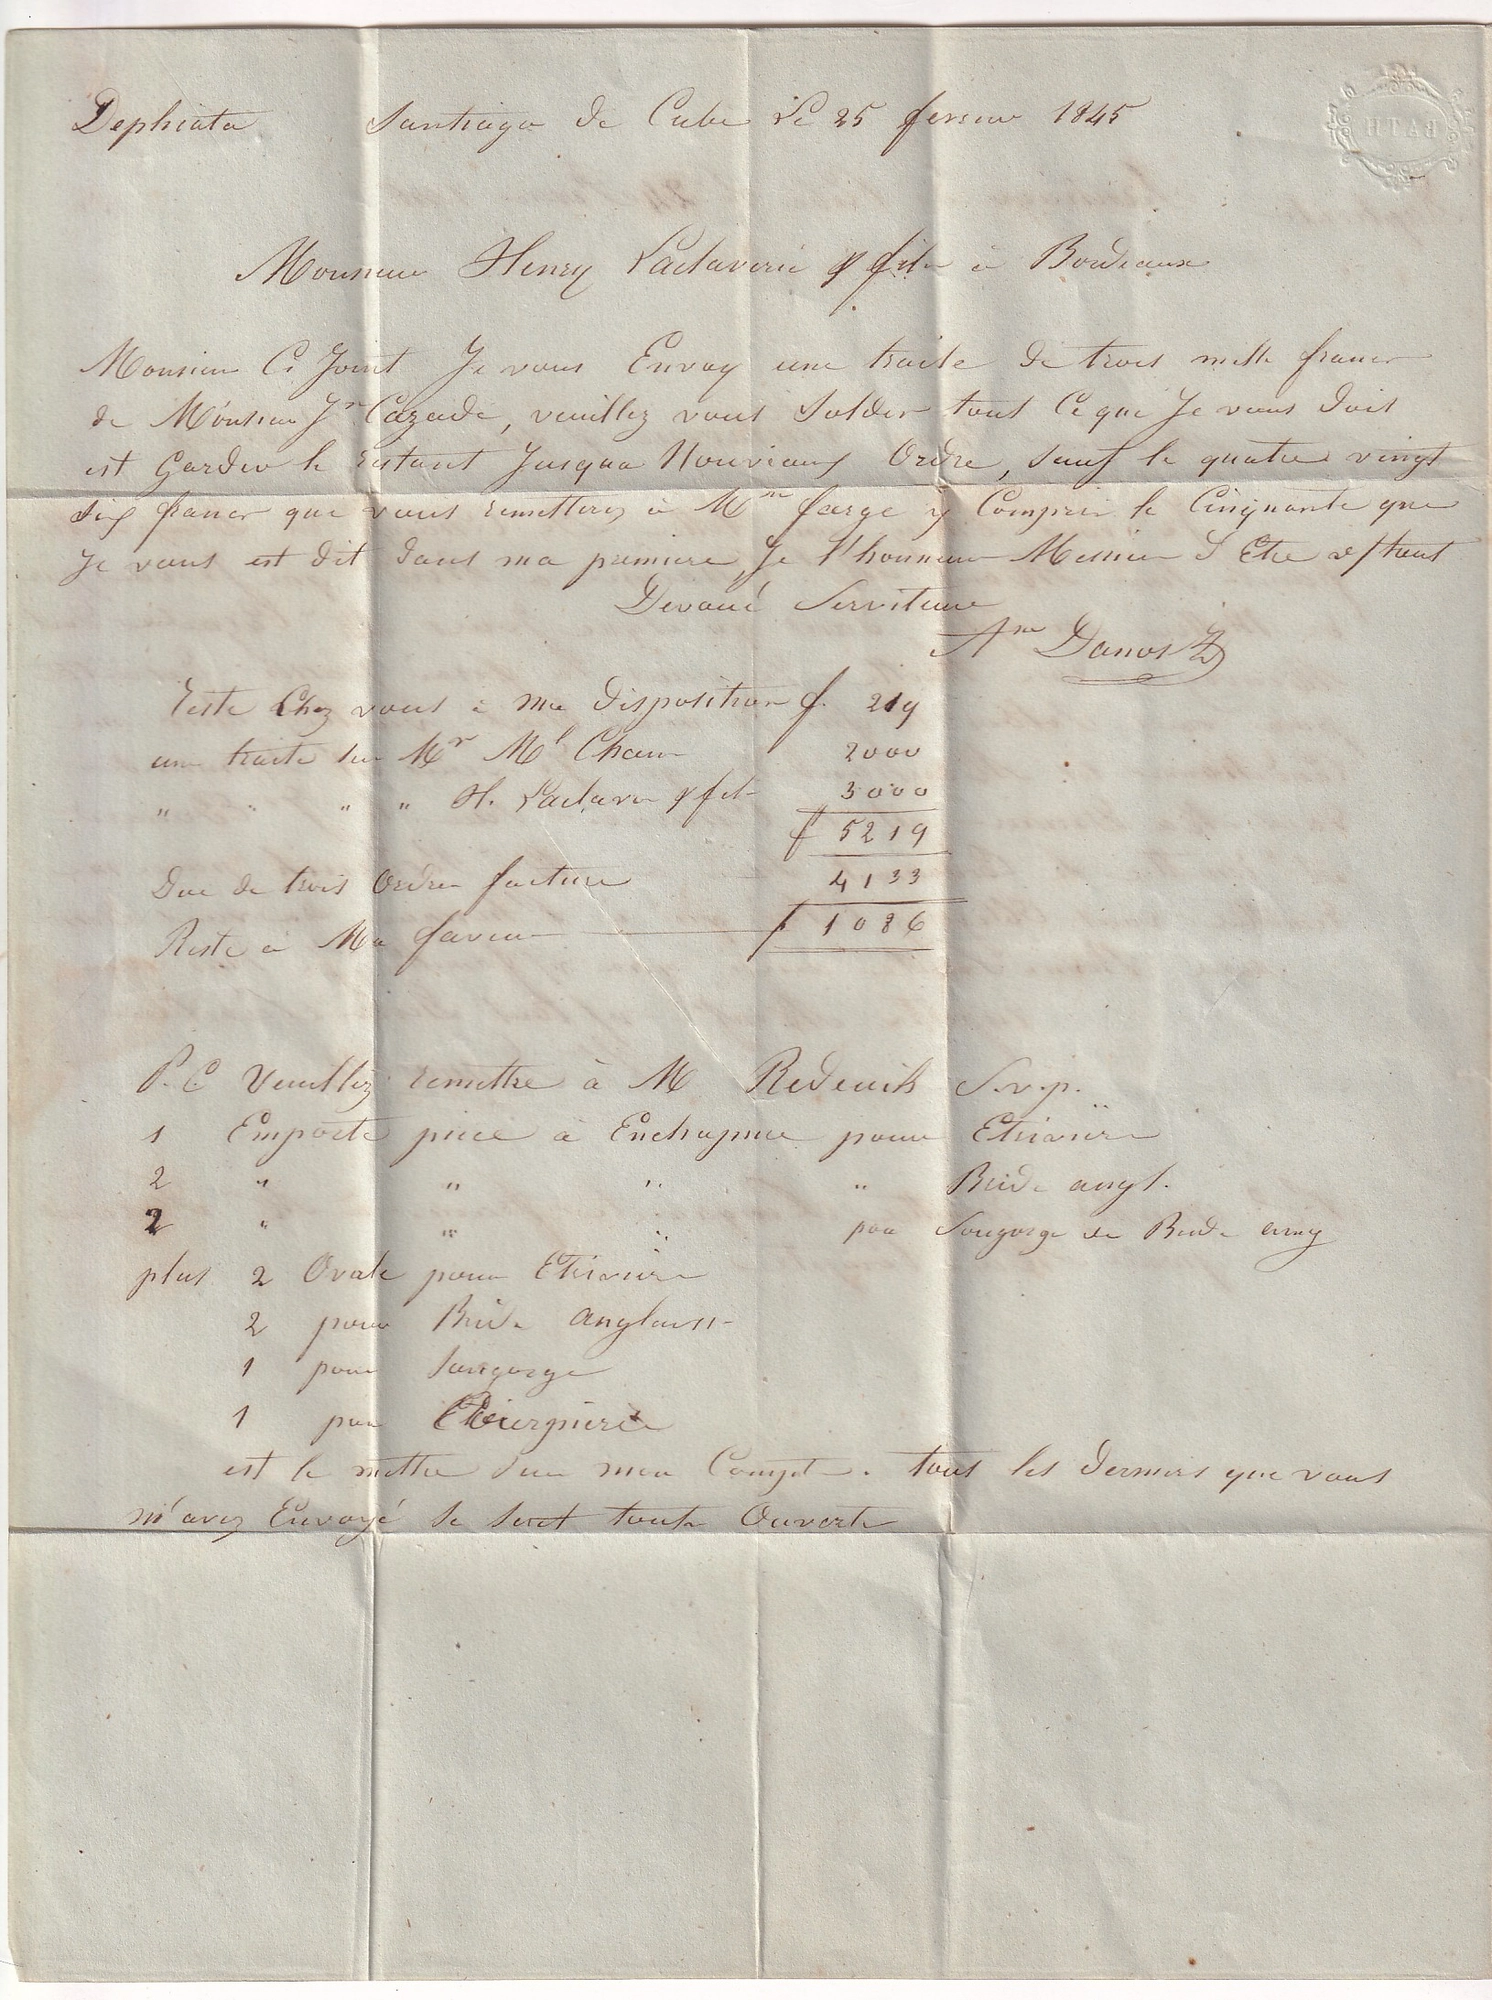 Dephiata Santiago de Cuba Le 25 fevrier 1845
BATH
Monsieur Henry Laclaverie & fils à Bordeaux
Monsieur Ci Joint Je vous Envoy une traite de trois mille francs
de Monsieur Jn Cazade, veuillez vous Solder tout Ce que Je vous dois
est Garder le restant Jusqua Nouveaux Ordre, Sauf le quatre vingt
Six francs que vous remetterez à Mme farge y Compris le Cinquante que
Je vous est dit dans ma premiere, Je l'honneur Messieur d Etre v/ tout
Devoué Serviteur
Am Danos
Reste Chez vous à ma disposition f. 219
une traite sur Mr Ml Chaum 2000
" " " " H. Laclaverie & fils 3000
f 5219
Due de trois Ordres facture 4133
Reste a Ma faveur f 1086
P.S Veuillez remettre à M Redeuilh S.v.p.
1 Emporte piece à Enchapure pour Etriviere
2 " " " " Bride angl.
2 " " " pour Sougorge de Bride ang
plus 2 Ovale pour Etriviere
2 pour Bride anglaise
1 pour Sougorge
1 pour
est le mettre sur mon Compte. tous les derniers que vous
m'avez Envoyé se sont toute Ouverte